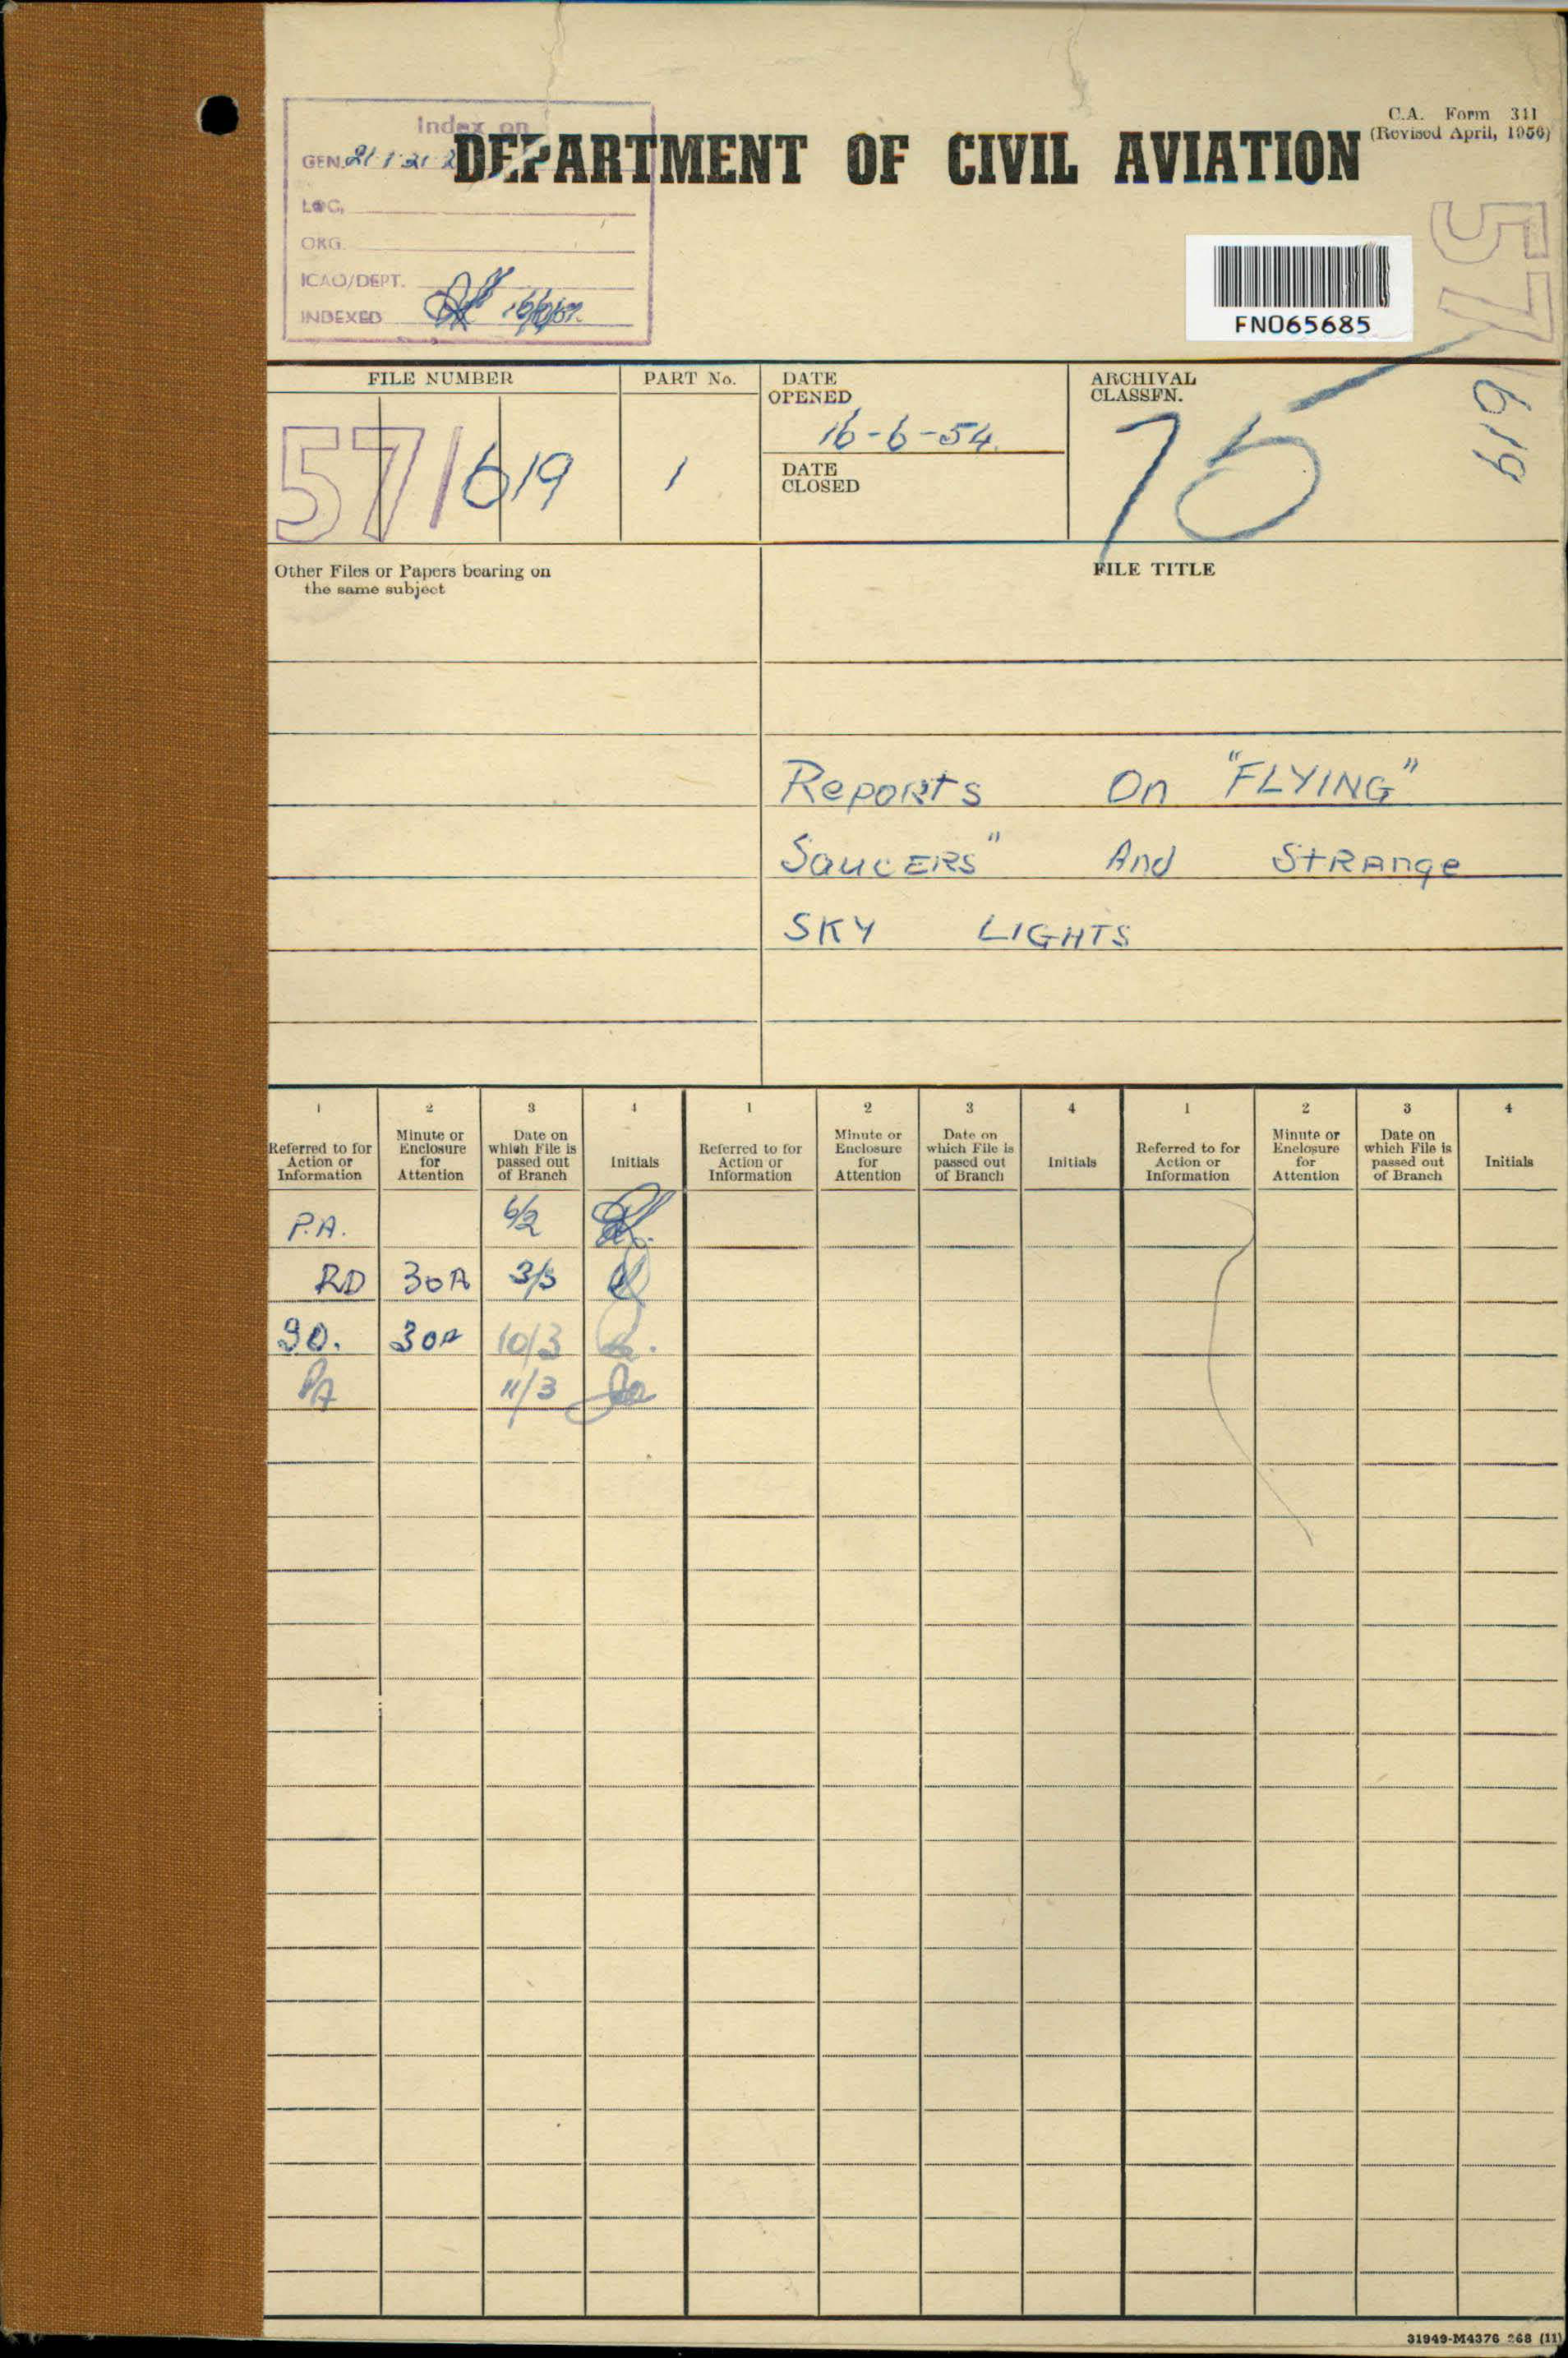 C.A. Form 311
(Revised April, 1956)
Index on
GEN.
DEPARTMENT OF CIVIL AVIATION
LOC,
ORG.
ICAO/DEPT.
INDEXED
57
619
FN065685
FILE NUMBER
PART No.
DATE
OPENED
ARCHIVAL
CLASSFN.
57/619
1
16-6-54.
75
DATE
CLOSED
Other Files or Papers bearing on
the same subject
FILE TITLE
Reports On "FLYING"
SaucERS" And StRAnge
SKY LIGHTS
1 2 3 4 1 2 3 4 1 2 3 4
Referred to for Action or Information
Minute or Enclosure for Attention
Date on which File is passed out of Branch
Initials
Referred to for Action or Information
Minute or Enclosure for Attention
Date on which File is passed out of Branch
Initials
Referred to for Action or Information
Minute or Enclosure for Attention
Date on which File is passed out of Branch
Initials
P.A. 6/2
RD 30A 3/3
30A 10/3
PA 11/3
31949-M4376 268 (11)